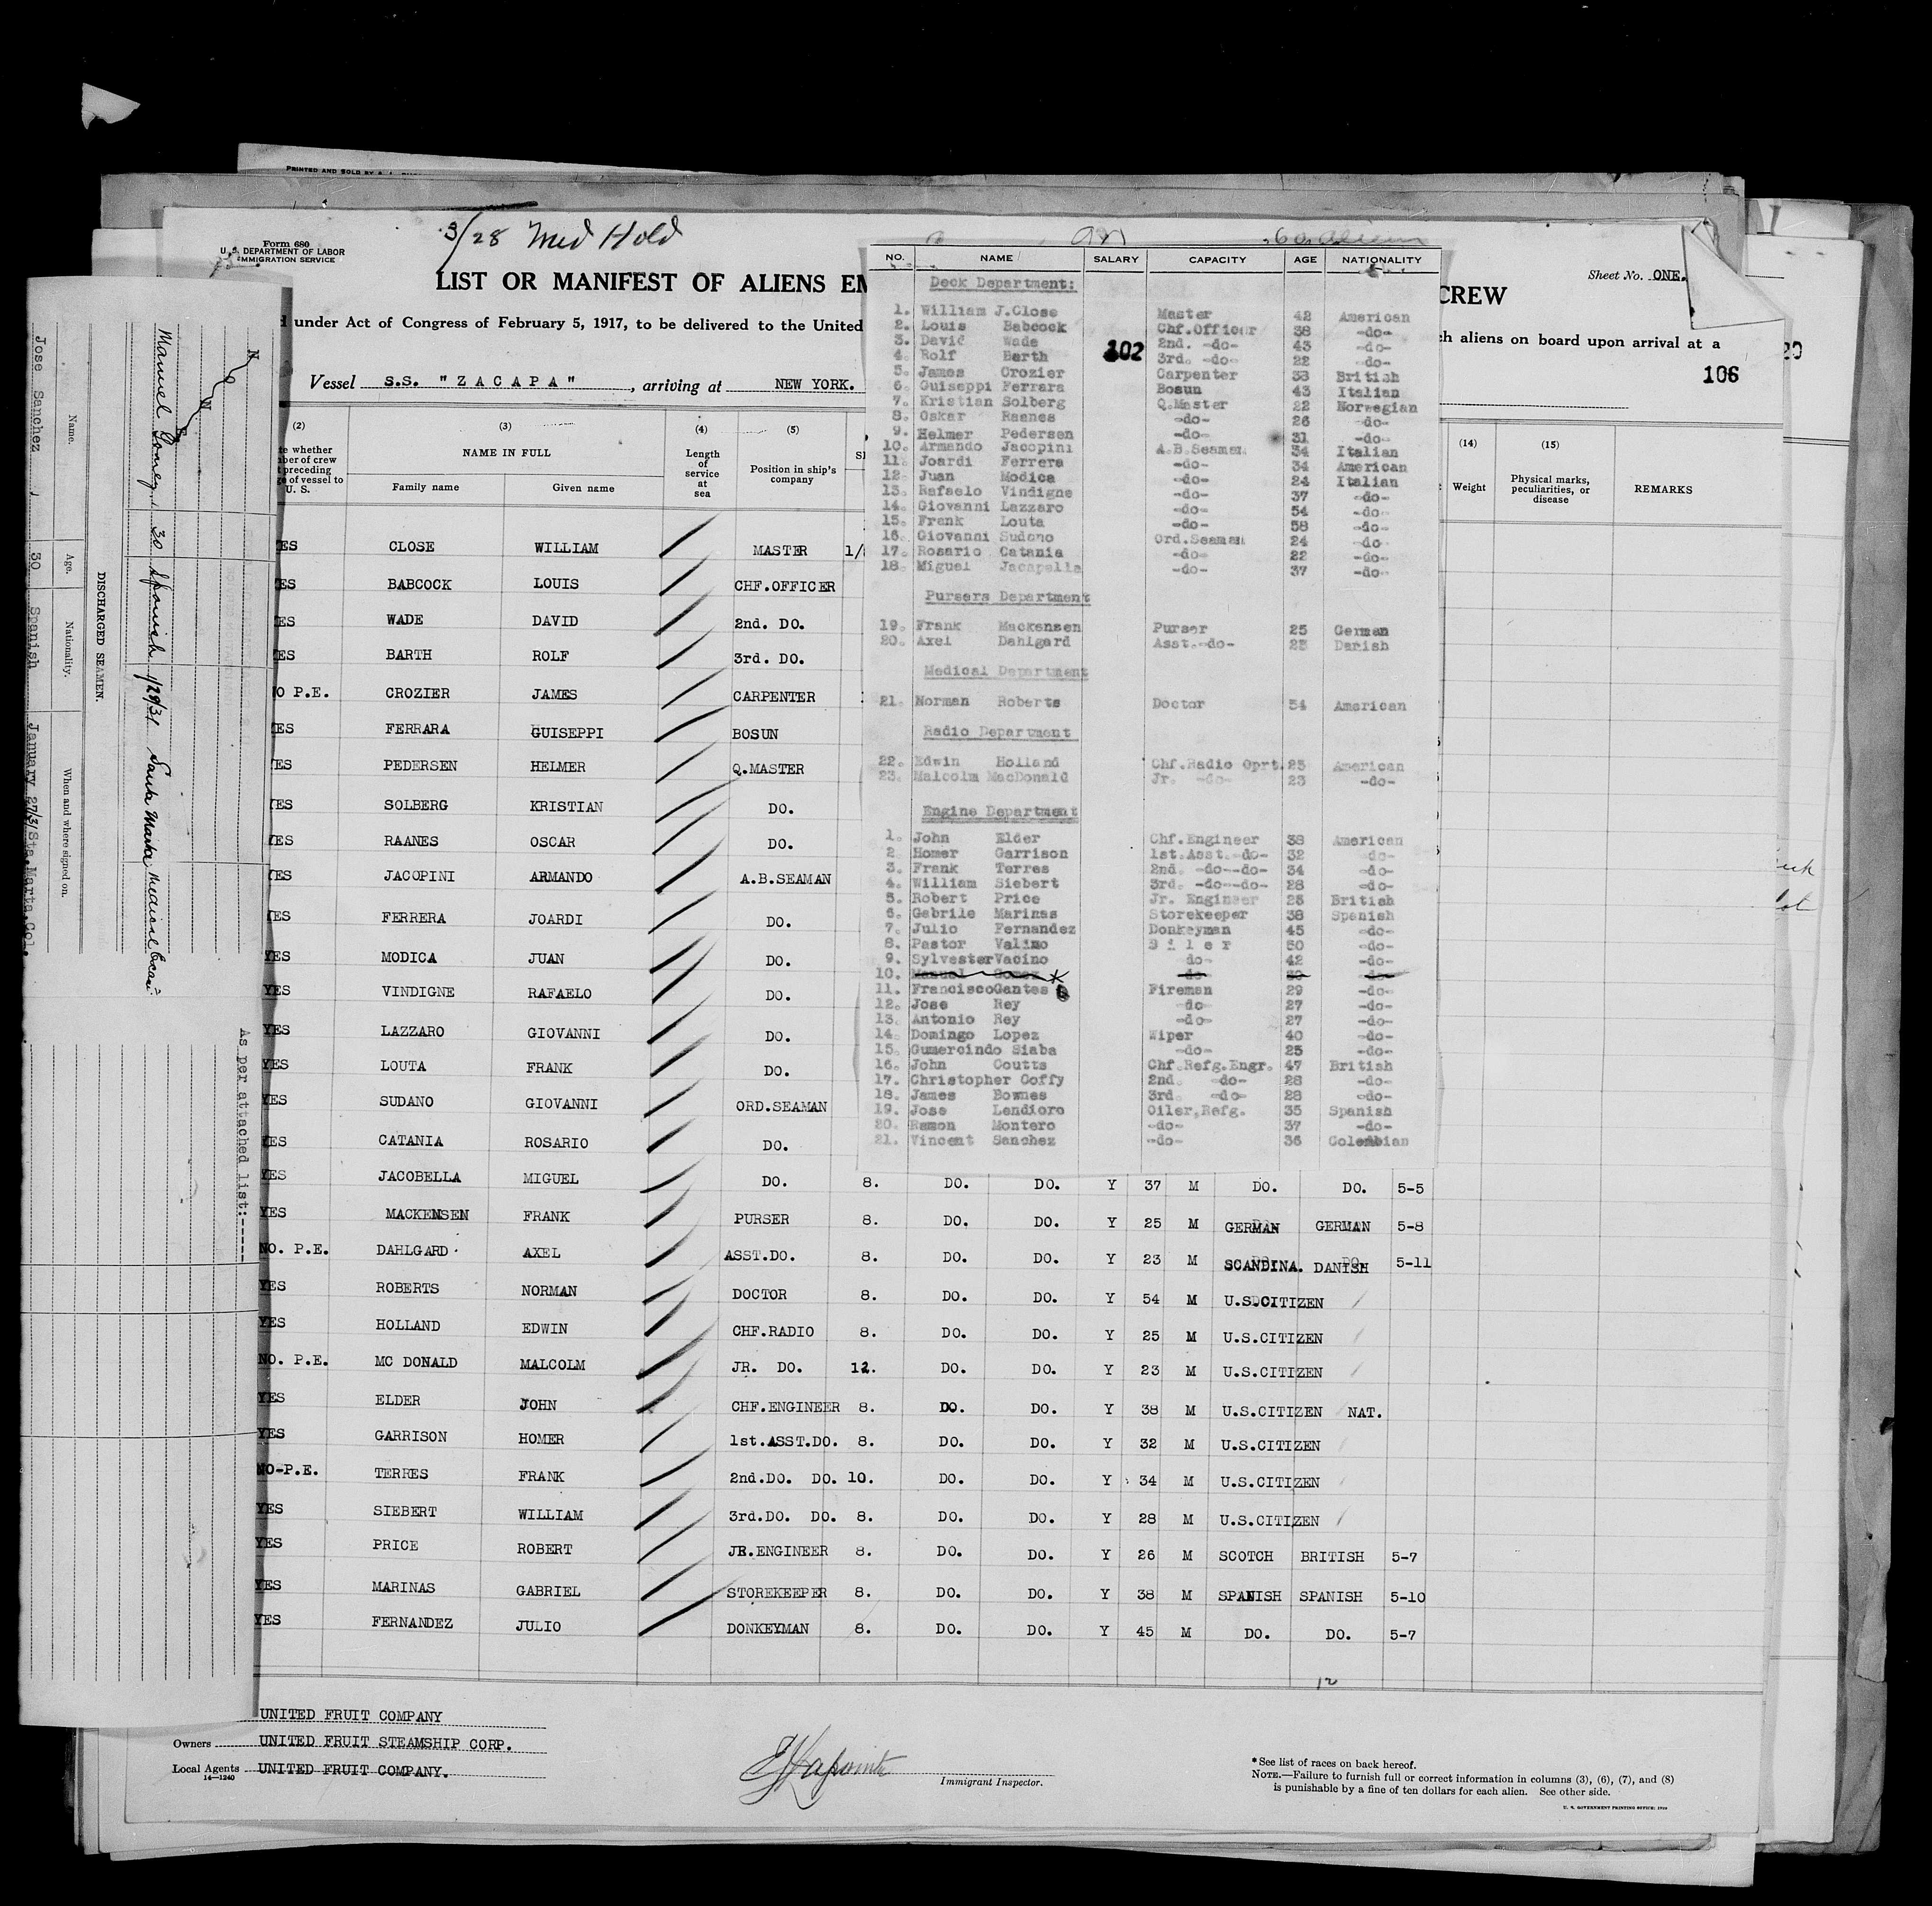 PRINTED AND SOLD BY
3/28 Med Hold
Form 680
U. S. DEPARTMENT OF LABOR
IMMIGRATION SERVICE
LIST OR MANIFEST OF ALIENS EM
CREW
Sheet No. ONE.
under Act of Congress of February 5, 1917, to be delivered to the United
ch aliens on board upon arrival at a
Vessel S.S. "ZACAPA", arriving at NEW YORK.
106
20
(2) (3) (4) (5) (14) (15)
te whether
ber of crew
preceding
e of vessel to
U. S.
NAME IN FULL
Family name Given name
Length of service at sea
Position in ship's company
Weight
Physical marks, peculiarities, or disease
REMARKS
ES CLOSE WILLIAM MASTER 1/
ES BABCOCK LOUIS CHF.OFFICER
ES WADE DAVID 2nd. DO.
ES BARTH ROLF 3rd. DO.
O P.E. CROZIER JAMES CARPENTER
ES FERRARA GUISEPPI BOSUN
ES PEDERSEN HELMER Q.MASTER
ES SOLBERG KRISTIAN DO.
ES RAANES OSCAR DO.
ES JACOPINI ARMANDO A.B.SEAMAN
ES FERRERA JOARDI DO.
YES MODICA JUAN DO.
YES VINDIGNE RAFAELO DO.
YES LAZZARO GIOVANNI DO.
YES LOUTA FRANK DO.
YES SUDANO GIOVANNI ORD.SEAMAN
YES CATANIA ROSARIO DO.
YES JACOBELLA MIGUEL DO. 8. DO. DO. Y 37 M DO. DO. 5-5
YES MACKENSEN FRANK PURSER 8. DO. DO. Y 25 M GERMAN GERMAN 5-8
NO. P.E. DAHLGARD AXEL ASST.DO. 8. DO. DO. Y 23 M SCANDINA. DANISH 5-11
YES ROBERTS NORMAN DOCTOR 8. DO. DO. Y 54 M U.S.CITIZEN
YES HOLLAND EDWIN CHF.RADIO 8. DO. DO. Y 25 M U.S.CITIZEN
NO. P.E. MC DONALD MALCOLM JR. DO. 12. DO. DO. Y 23 M U.S.CITIZEN
YES ELDER JOHN CHF.ENGINEER 8. DO. DO. Y 38 M U.S.CITIZEN NAT.
YES GARRISON HOMER 1st.ASST.DO. 8. DO. DO. Y 32 M U.S.CITIZEN
NO-P.E. TERRES FRANK 2nd.DO. DO. 10. DO. DO. Y 34 M U.S.CITIZEN
YES SIEBERT WILLIAM 3rd.DO. DO. 8. DO. DO. Y 28 M U.S.CITIZEN
YES PRICE ROBERT JR.ENGINEER 8. DO. DO. Y 26 M SCOTCH BRITISH 5-7
YES MARINAS GABRIEL STOREKEEPER 8. DO. DO. Y 38 M SPANISH SPANISH 5-10
YES FERNANDEZ JULIO DONKEYMAN 8. DO. DO. Y 45 M DO. DO. 5-7
12
UNITED FRUIT COMPANY
Owners UNITED FRUIT STEAMSHIP CORP.
Local Agents UNITED FRUIT COMPANY.
14—1240
Immigrant Inspector.
*See list of races on back hereof.
NOTE.—Failure to furnish full or correct information in columns (3), (6), (7), and (8)
is punishable by a fine of ten dollars for each alien. See other side.
NO. NAME SALARY CAPACITY AGE NATIONALITY
Deck Department:
1. William J.Close Master 42 American
2. Louis Babcock Chf.Officer 38 -do-
3. David Wade 2nd. -do- 43 -do-
102
4. Rolf Barth 3rd. -do- 22 -do-
5. James Crozier Carpenter 38 British
6. Guiseppi Ferrara Bosun 43 Italian
7. Kristian Solberg Q.Master 22 Norwegian
8. Oskar Raanes -do- 26 -do-
9. Helmer Pedersen -do- 31 -do-
10. Armando Jacopini A.B.Seaman 34 Italian
11. Joardi Ferrera -do- 34 American
12. Juan Modica -do- 24 Italian
13. Rafaelo Vindigne -do- 37 -do-
14. Giovanni Lazzaro -do- 54 -do-
15. Frank Louta -do- 58 -do-
16. Giovanni Sudono Ord.Seaman 24 -do-
17. Rosario Catania -do- 22 -do-
18. Miguel Jacapella -do- 37 -do-
Pursers Department
19. Frank Mackensen Purser 25 German
20. Axel Dahlgard Asst.-do- 23 Danish
Medical Department
21. Norman Roberts Doctor 54 American
Radio Department
22. Edwin Holland Chf.Radio Oprt. 25 American
23. Malcolm MacDonald Jr. -do- 23 -do-
Engine Department
1. John Elder Chf.Engineer 38 American
2. Homer Garrison 1st.Asst.-do- 32 -do-
3. Frank Terres 2nd. -do--do- 34 -do-
4. William Siebert 3rd. -do--do- 28 -do-
5. Robert Price Jr. Engineer 26 British
6. Gabrile Marinas Storekeeper 38 Spanish
7. Julio Fernandez Donkeyman 45 -do-
8. Pastor Valino O i l e r 50 -do-
9. SylvesterVacino do- 42 -do-
10. Manual Gomez do 30 -do-
11. FranciscoGantes Fireman 29 -do-
12. Jose Rey -do- 27 -do-
13. Antonio Rey -do- 27 -do-
14. Domingo Lopez Wiper 40 -do-
15. Gumercindo Siaba -do- 25 -do-
16. John Coutts Chf.Refg.Engr. 47 British
17. Christopher Coffy 2nd. -do- 28 -do-
18. James Bownes 3rd. -do- 28 -do-
19. Jose Lendioro Oiler,Refg. 35 Spanish
20. Ramon Montero -do- 37 -do-
21. Vincent Sanchez -do- 36 Colombian
DISCHARGED SEAMEN.
Name. Age. Nationality. When and where signed on.
Jose Sanchez, 30 Spanish January 27/31 Sta.Marta.Col.
NONE
Manuel Gomez, 30 Spanish 1/28/31 Santa Marta
As per attached list:-----